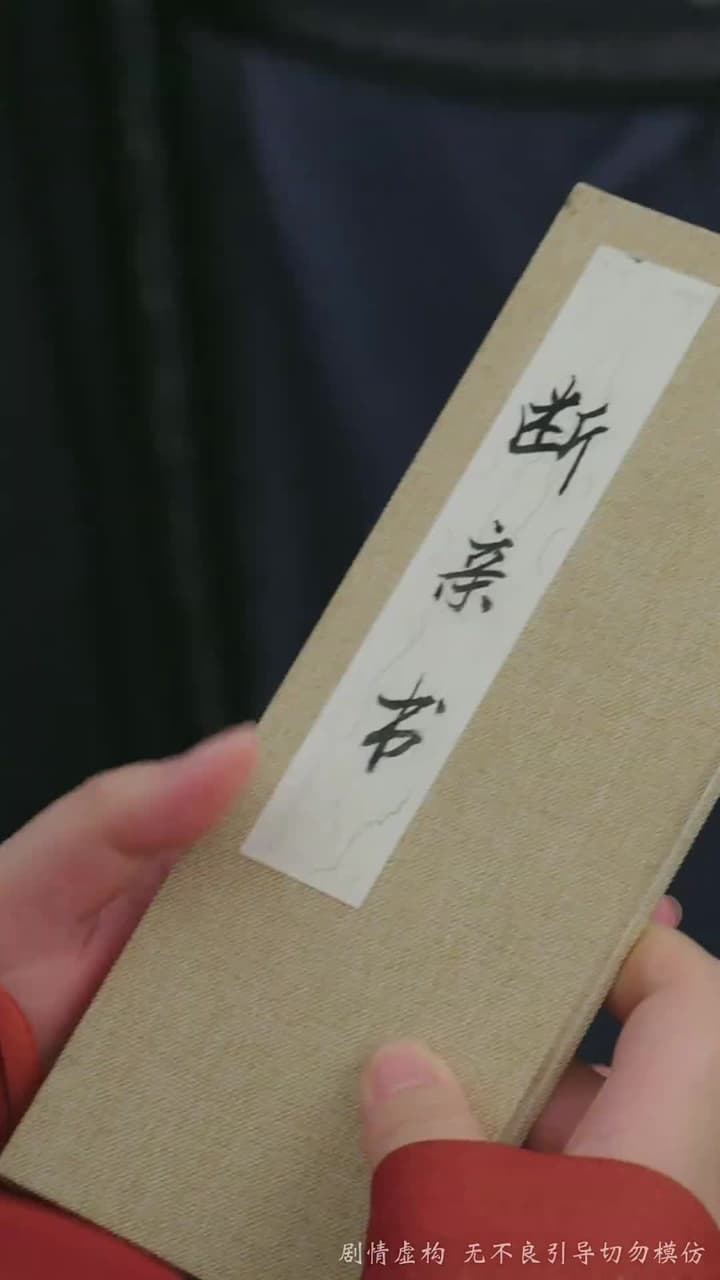 断亲书
剧情虚构 无不良引导切勿模仿